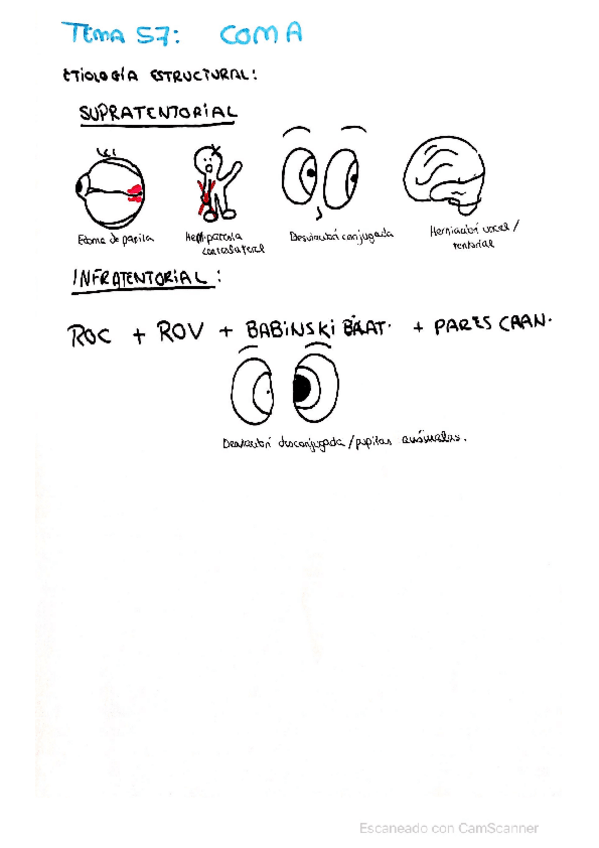 TEMA 57: COMA
ETIOLOGÍA ESTRUCTURAL:
SUPRATENTORIAL
Edema de papila
Hemiparesia
contralateral
Desviación conjugada
Herniación uncal /
tentorial
INFRATENTORIAL:
ROC + ROV + BABINSKI BILAT. + PARES CRAN.
Desviación desconjugada / pupilas anómalas.
Escaneado con CamScanner